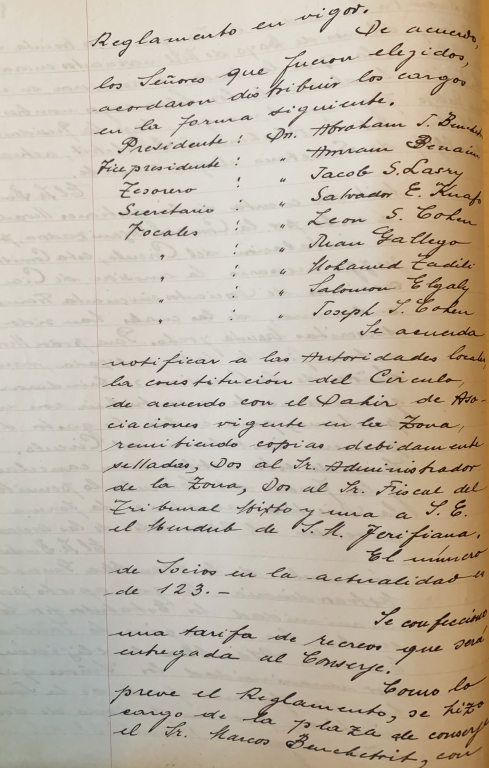 Reglamento en vigor.
De acuerdo,
los Señores que fueron elegidos,
acordaron distribuir los cargos
en la forma siguiente.
Presidente : Dn. Abraham S. Benchetrit
Vicepresidente : " Amram Benaim
Tesorero : " Jacob S. Lasry
Secretario : " Salvador E. Knafo
Vocales : " Leon S. Cohen
" : " Juan Gallego
" : " Mohamed Zadili
" : " Salomon Elgaly
" : " Joseph S. Cohen
Se acuerda
notificar a las Autoridades locales,
la constitución del Circulo,
de acuerdo con el Dahir de Aso-
ciaciones vigente en la Zona,
remitiendo copias debidamente
selladas, Dos al Sr. Administrador
de la Zona, Dos al Sr. Fiscal del
Tribunal Mixto y una a S. E.
el Mendub de S. M. Jerifiana.
El número
de Socios en la actualidad
de 123.-
Se confecciono
una tarifa de recreos que será
entregada al Conserje.
Como lo
preve el Reglamento, se hizo
cargo de la plaza de conserje
el Sr. Marcos Benchetrit, con